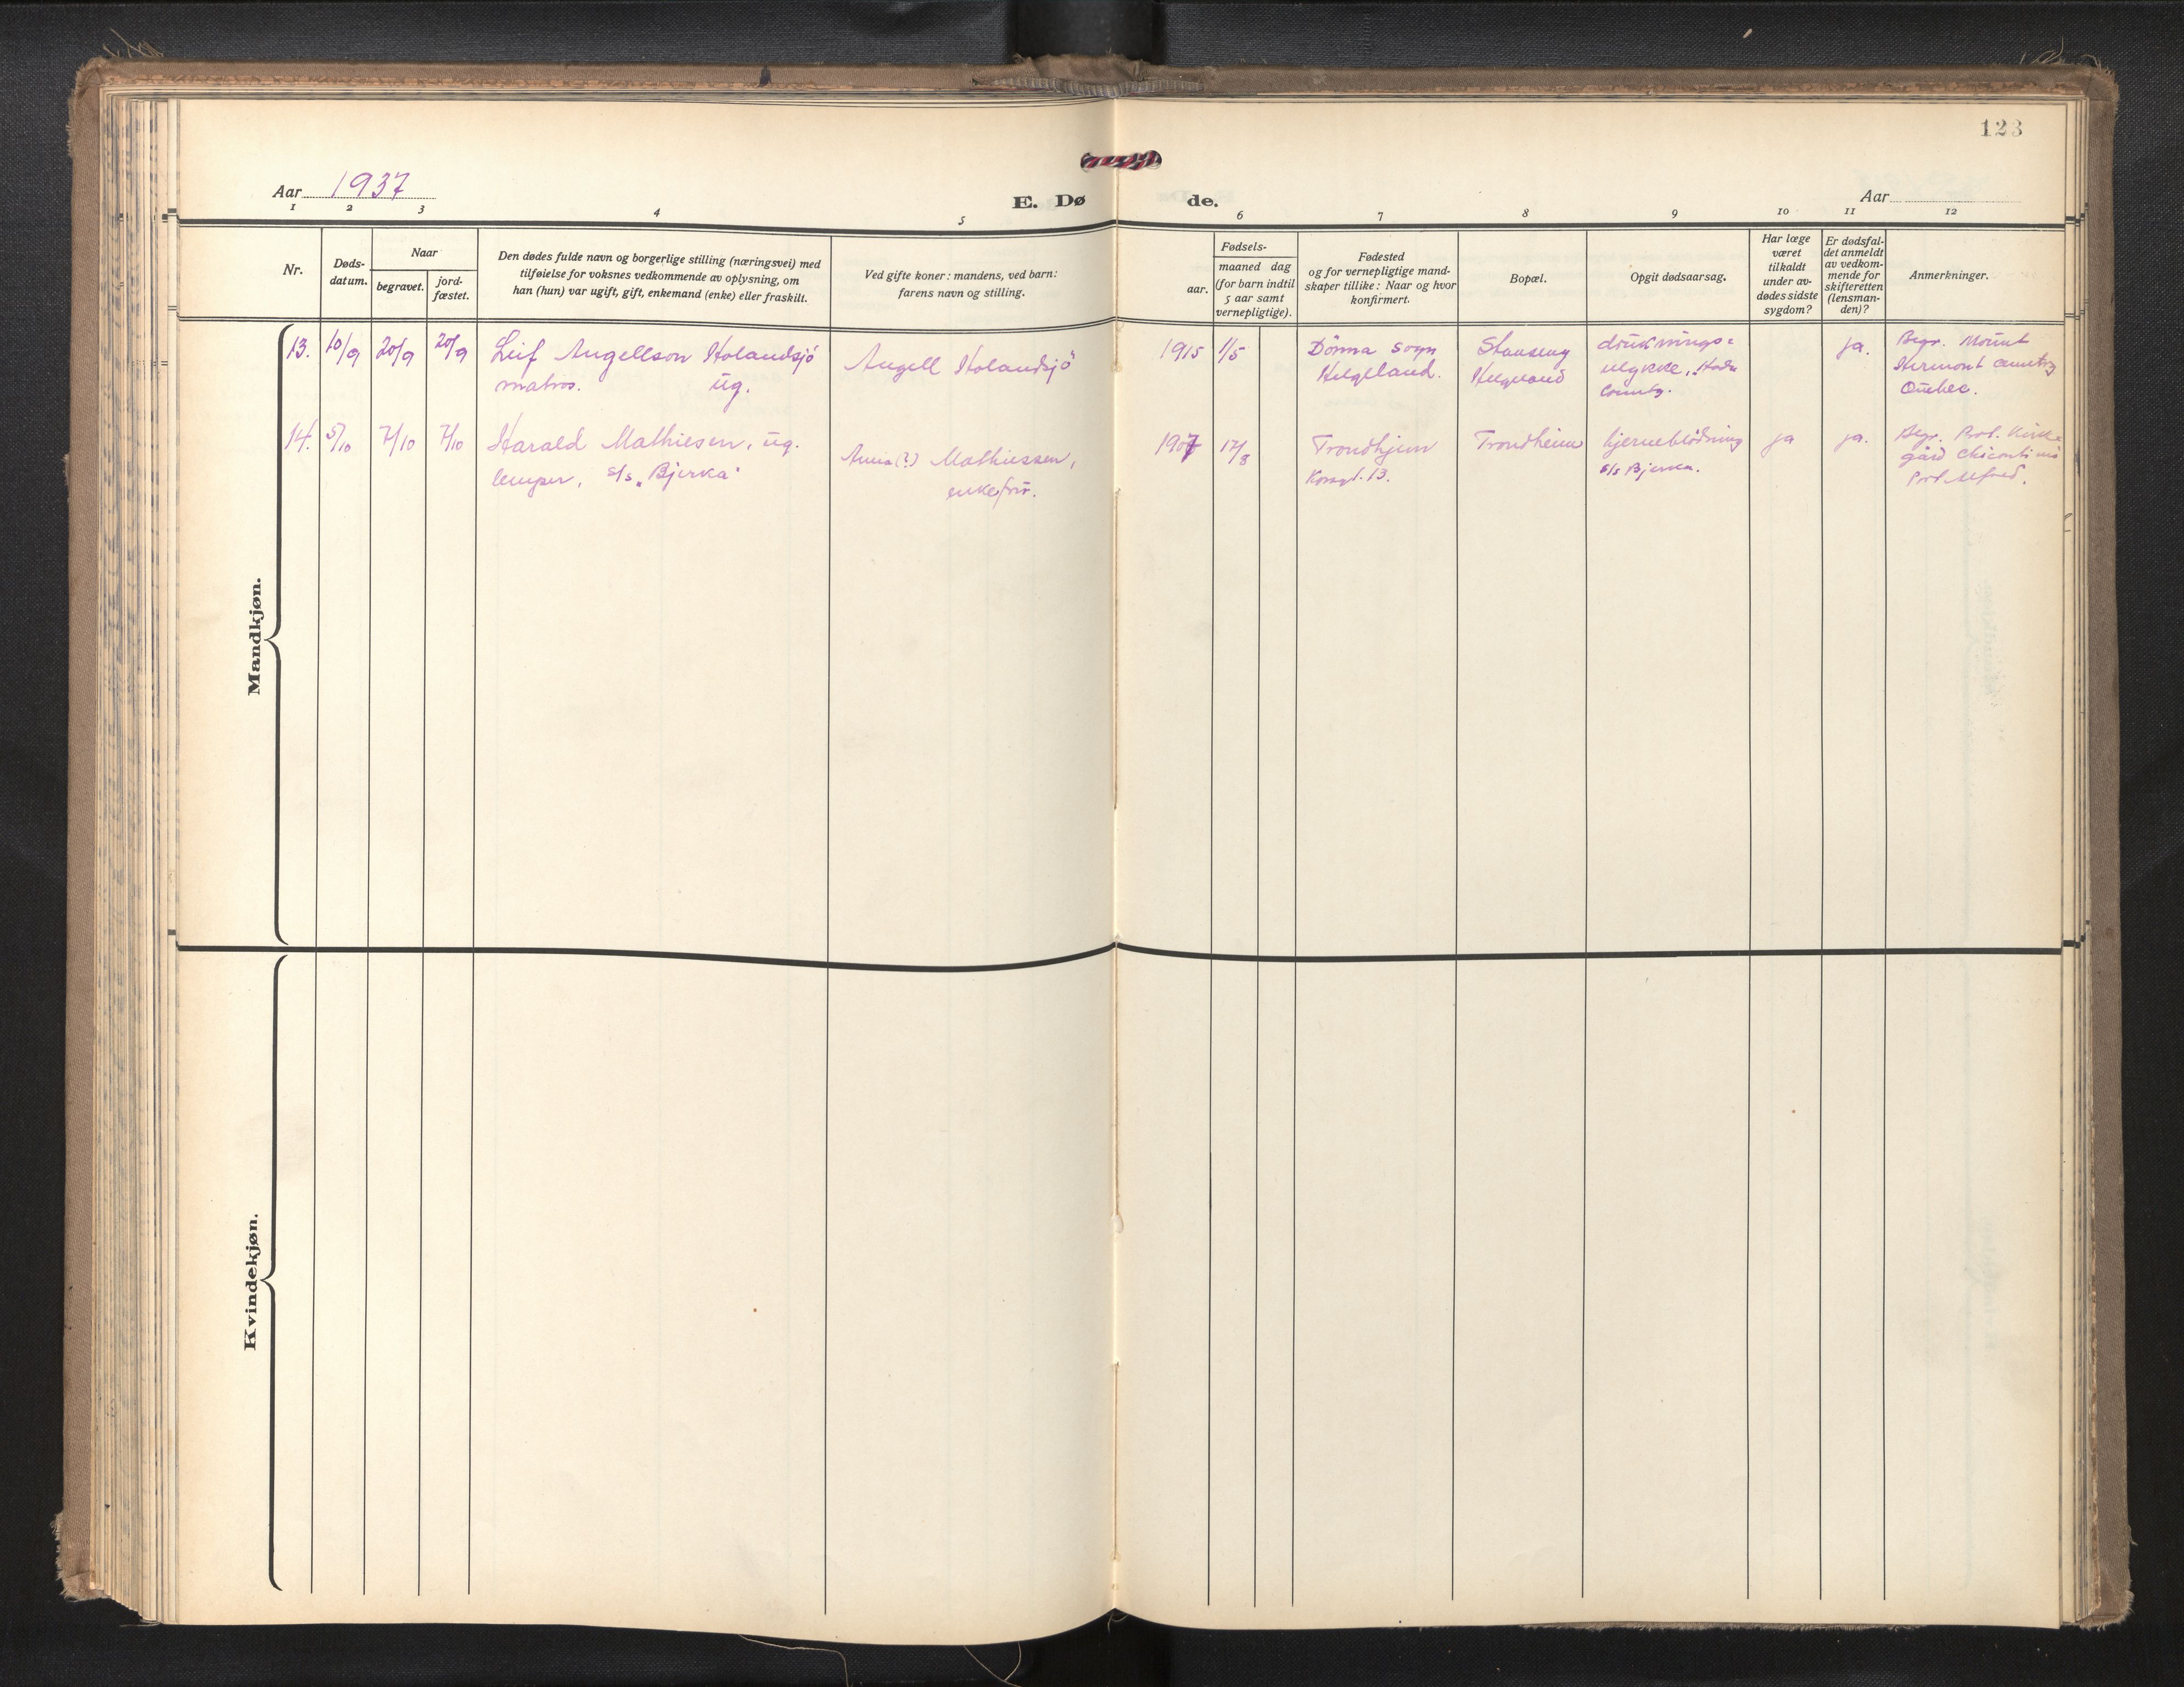 123
Aar 1937
E. Dø
de.
Aar
1 2 3 4 5 6 7 8 9 10 11 12
Nr.
Døds-
datum.
Naar
begravet.
jord-
fæstet.
Den dødes fulde navn og borgerlige stilling (næringsvei) med
tilføielse for voksnes vedkommende av oplysning, om
han (hun) var ugift, gift, enkemand (enke) eller fraskilt.
Ved gifte koner: mandens, ved barn:
farens navn og stilling.
Fødsels-
aar.
maaned dag
(for barn indtil
5 aar samt
vernepligtige).
Fødested
og for vernepligtige mand-
skaper tillike: Naar og hvor
konfirmert.
Bopæl.
Opgit dødsaarsag.
Har læge
været
tilkaldt
under av-
dødes sidste
sygdom?
Er dødsfal-
det anmeldt
av vedkom-
mende for
skifteretten
(lensman-
den)?
Anmerkninger.
Mandkjøn.
13.
10/9
20/9
20/9
Leif Angellson Holandsjö
matros. ug.
Angell Holandsjö
1915
1/5
Dönna sogn
Helgeland.
Helgeland
druknings=
ulykke,
County.
ja.
Begr. Mount
Hermont cemetry
Quebec.
14.
5/10
7/10
7/10
Harald Mathiesen, ug.
lemper, s/s „Bjerka"
Anna(?) Mathiessen,
enkefru.
1907
17/8
Trondhjem
Korsgt. 13.
Trondheim
hjerneblödning
s/s Bjerka.
ja
ja.
Begr. Prot. Kirke
gård Chicoutimi
Port Alfred.
Kvindekjøn.